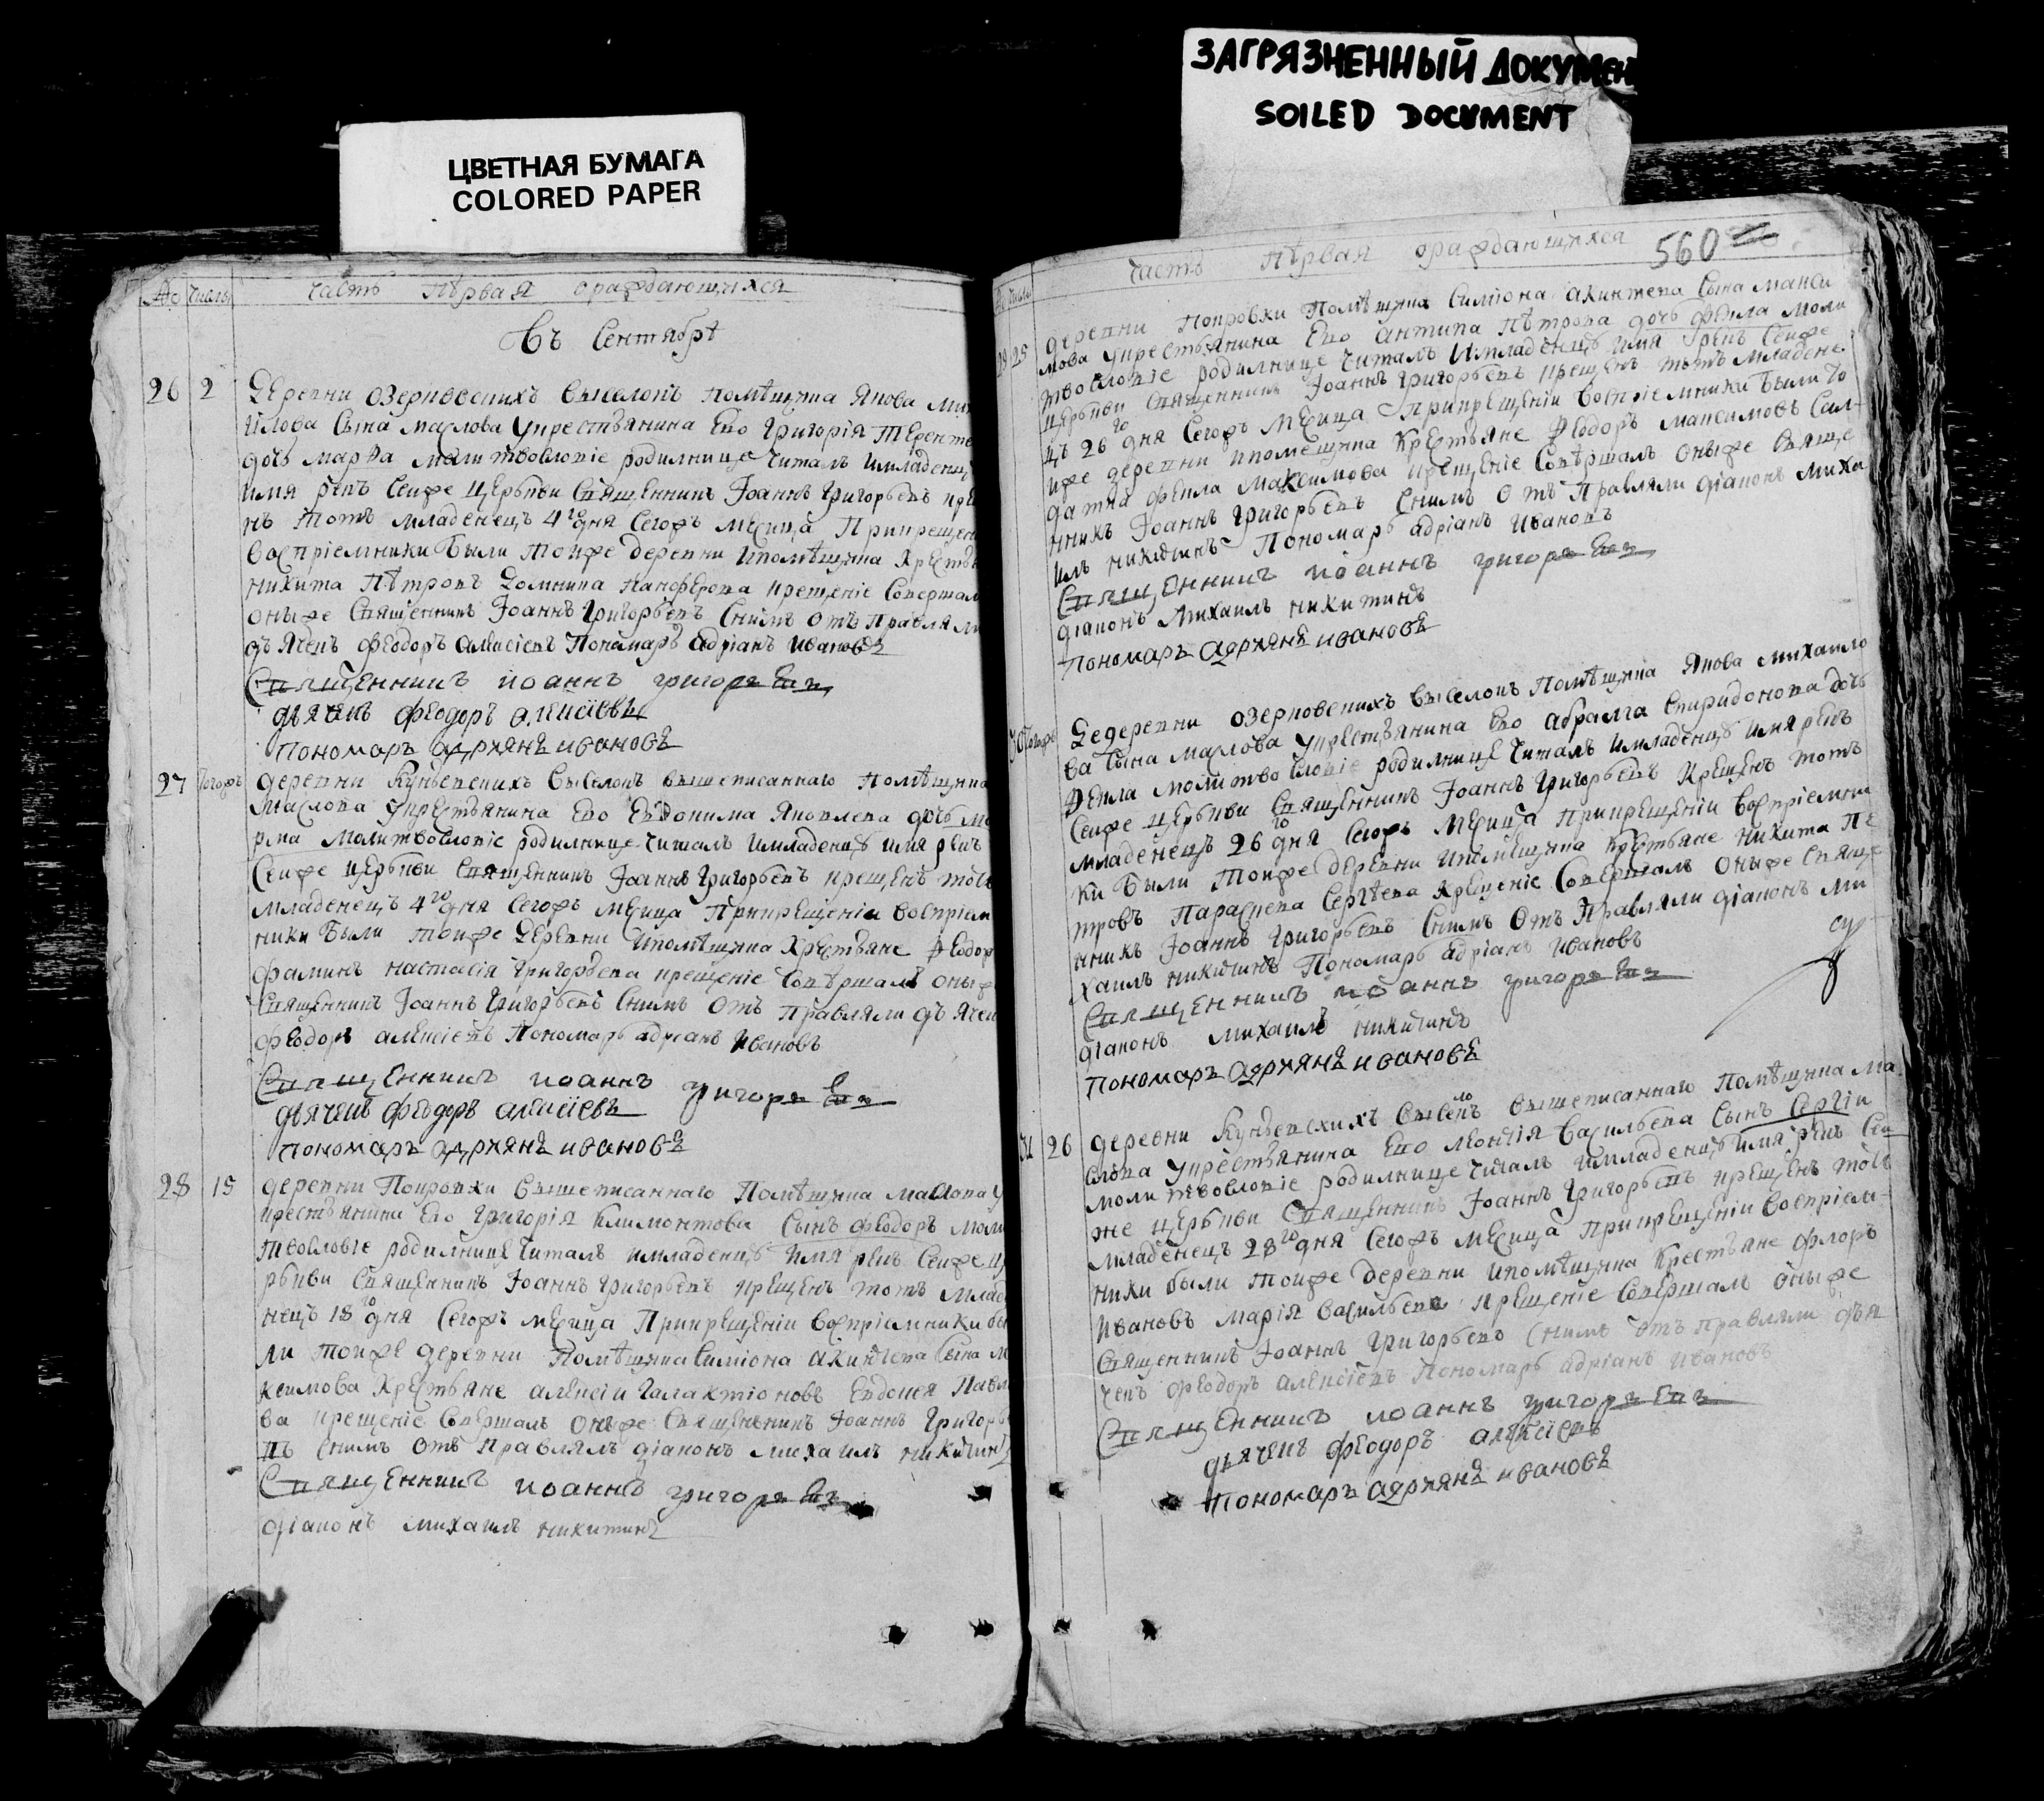 ЗАГРЯЗНЕННЫЙ ДОКУМЕН
SOILED DOCUMENT
ЦВЕТНАЯ БУМАГА
COLORED PAPER
№ числы часть пѣрвая ораждающихся
Въ Сентябрѣ
26 2 Деревни Озерковскихъ выселокъ помѣщика Якова Мих
илова сына Маслова укрестьянина Ево Григорія Теренте
дочь марѳа молитвословіе родилнице читалъ имладенцу
имя рекъ Сейже церькви Священникъ Іоаннъ Григорьевъ кре
нъ тотъ младенецъ 4го дня Сегожъ мѣсяца Прикрещен
воспріемники были тойже деревни ипомѣщика Крестья
никита Пѣтровъ Домника панферова крещеніе Совершал
оныже Священникъ Іоаннъ Григорьевъ Снимъ отъ Правляли
дьячекъ Феодоръ алексіевъ Пономарь адріанъ Ивановъ
Священникъ иоаннъ григорьевъ
дьячекъ феодоръ алексіевъ
пономарь адриянъ ивановъ
27 тогожъ деревни Куньевскихъ выселокъ вышеписаннаго помѣщика
Маслова укрестьянина Ево Евдокима Яковлева дочь Ма
рѳа молитвословіе родилнице читалъ имладенцу имя рекъ
Сейже церькви Священникъ Іоаннъ Григорьевъ крещенъ тотъ
младенецъ 4го дня Сегожъ мѣсяца Прикрещеніи воспріем
ники были тойже Деревни ипомѣщика Крестьяне Феодор
фаминъ настасія Григорьева крещеніе Совѣршалъ оныж
Священникъ Іоаннъ Григорьевъ Снимъ отъ Правляли дьячек
Феодоръ алексіевъ Пономарь адріанъ Ивановъ
Священникъ иоаннъ григорьевъ
дьячекъ феодоръ алексіевъ
пономарь адриянъ ивановъ
28 15 деревни Покровки вышеписаннаго Помѣщика Маслова у
крестьянина Ево Григорія Климонтова Сынъ Феодоръ моли
твословіе родилнице читалъ имладенцу имя рекъ Сейже це
рькви Священникъ Іоаннъ Григорьевъ крещенъ тотъ млад
нецъ 18го дня Сегожъ мѣсяца Прикрещеніи воспріемники бы
ли тойже деревни Помѣщика Симіона акинѳева Сына М
ксимова Крестьяне алексіи Галактіоновъ Евдокея Павл
ва крещеніе Совершалъ оныже Священникъ Іоаннъ Григорь
въ Снимъ отъ Правлялъ діаконъ михаилъ никитинъ
Священникъ иоаннъ григорьевъ
діаконъ михаилъ никитинъ
часть пѣрвая ораждающихся 560
29 25 деревни Покровки Помѣщика Симіона акинтева Сына Макси
мова укрестьянина Ево антипа Пѣтрова дочь Ѳекла моли
твословіе родилнице читалъ имладенцу имя рекъ Сейже
церькви Священникъ Іоаннъ Григорьевъ крещенъ тотъ младене
цъ 26го дня Сегожъ мѣсяца Прикрещеніи воспріемники были то
иже деревни ипомещика Крестьяне Феодоръ Максимовъ Сол-
датка Ѳекла Максимова крещеніе Совѣршалъ оныже Свяще
нникъ Іоаннъ Григорьевъ Снимъ отъ Правляли діаконъ миха
илъ никитинъ Пономарь адріанъ Ивановъ
Священникъ иоаннъ григорьевъ
діаконъ михаилъ никитинъ
пономарь адриянъ ивановъ
30 тогожъ Дедеревни Озерковскихъ выселокъ Помѣщика Якова михаило
ва Сына Маслова укрестьянина Ево абрама Спиридонова дочь
Ѳекла молитвословіе родилнице читалъ имладенцу имя рекъ
Сейже церькви Священникъ Іоаннъ Григорьевъ Крещенъ тотъ
младенецъ 26го дня Сегожъ мѣсяца Прикрещеніи воспріемни
ки были тойже деревни ипомѣщика крестьяне никита Пе
тровъ Параскева Сергѣева Крещеніе Совершалъ оныже Свяще
нникъ Іоаннъ Григорьевъ Снимъ отъ Правляли діаконъ ми
хаилъ никитинъ Пономарь адріанъ Ивановъ
Священникъ иоаннъ григорьевъ
діаконъ михаилъ никитинъ
пономарь адриянъ ивановъ
31 26 деревни Куньевскихъ выселокъ вышеписаннаго Помѣщика Ма
слова укрестьянина Ево леонтія васильева Сынъ Сергіи
молитвословіе родилнице читалъ имладенцу имя рекъ Сей
же церькви Священникъ Іоаннъ Григорьевъ крещенъ тотъ
младенецъ 28го дня Сегожъ мѣсяца Прикрещеніи воспріем-
ники были тойже деревни ипомѣщика Крестьяне флоръ
Ивановъ марія васильева крещеніе Совершалъ оныже
Священникъ Іоаннъ Григорьевъ Снимъ отъ правляли дья
чекъ Феодоръ алексіевъ Пономарь адріанъ Ивановъ
Священникъ иоаннъ григорьевъ
дьячекъ феодоръ алексіевъ
пономарь адриянъ ивановъ